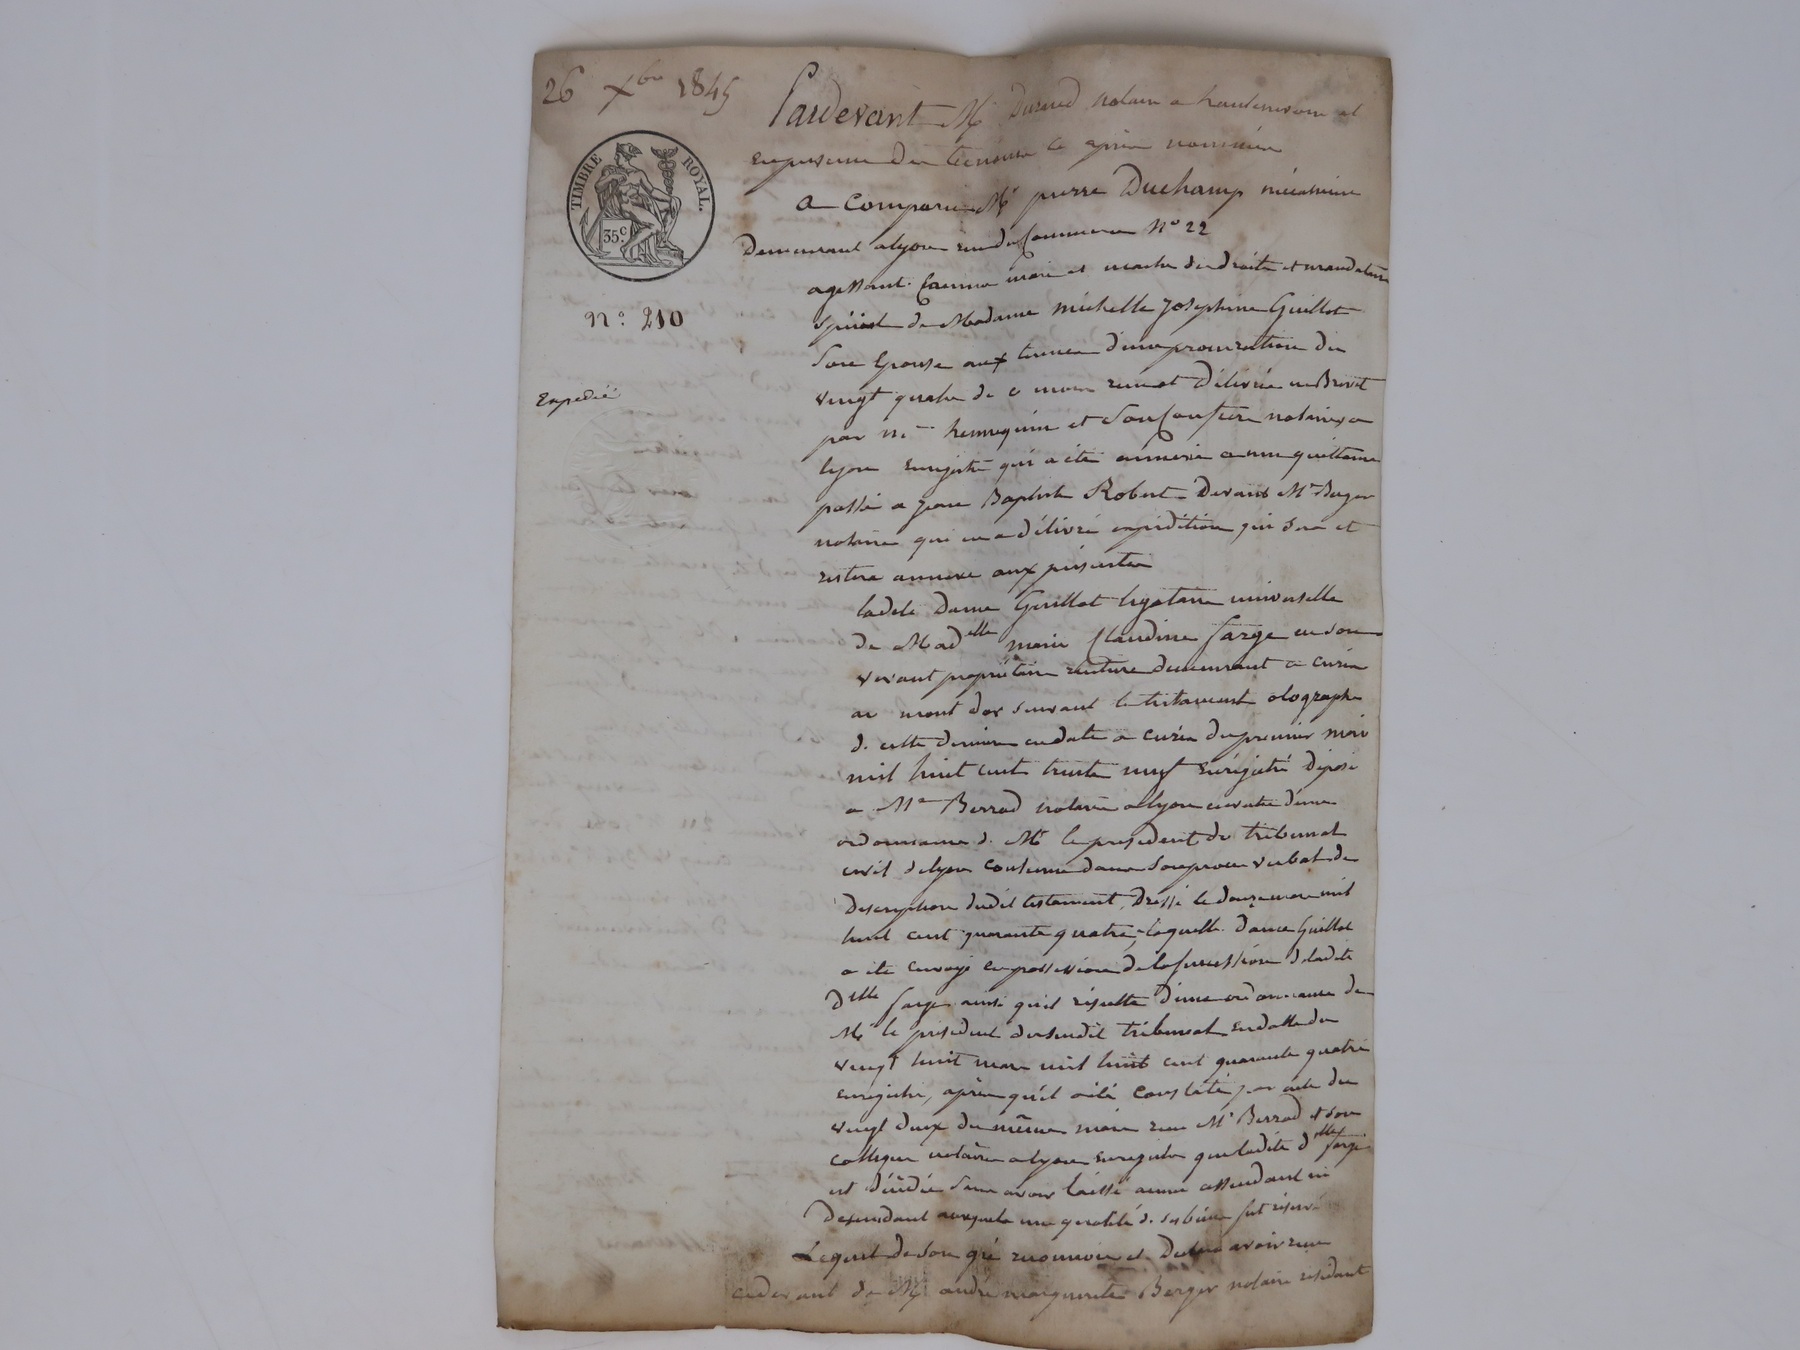 26 Xbre 1845
TIMBRE ROYAL.
35c.
N°. 210
Expedié
Pardevant Me Durand notaire a hauterivoire et
en presence des temoins ci après nommés
a Comparu Mr pierre Duchamp mécanicien
Demeurant a lyon rue du Commerce N° 22
agissant Comme mari et maitre des droits et mandataire
spécial de Madame michelle Josephine Guillot
son Epouse aux termes d'une procuration du
vingt quatre de ce mois recu et délivrée en Brevet
par Me hennequin et son Confrere notaires a
lyon enregistré qui a été annexée a une quittance
passée a jean Baptiste Robert Devant Me Berger
notaire qui en a délivré expédition qui sera et
restera annexée aux présentes
ladite Dame Guillot legataire universelle
de Madelle marie Claudine farge en son
vivant propriétaire rentiere demeurant a curis
au mont d'or suivant le testament olographe
de cette derniere en date a curis du premier mai
mil huit cent trente neuf enrégistré déposé
a Me Berrod notaire a lyon en vertu d'une
ordonnance de Mr le president du tribunal
civil de lyon contenue dans son proces verbal de
description dudit testament, dressé le douze mars mil
huit cent quarante quatre, laquelle dame Guillot
a été envoyé en possession de la succession de ladite
Delle farge ainsi qu'il résulte d'une ordonnance de
Mr le president du susdit tribunal en datte du
vingt huit mars mil huit cent quarante quatre
enregistré, après qu'il a été constaté par acte du
vingt deux du même mois recu Me Berrod et son
collegue notaires a lyon enregistré que ladite delle farge
est décédée sans avoir laissé aucun assendant ni
desendant auxquels une quotité de ses biens fut réservé
Lequel de son gré reconnoit et declare avoir recu
cidevant de Me andré marguerite Berger notaire résidant